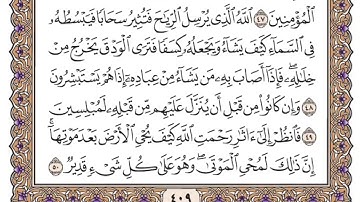 ٱلْمُؤْمِنِينَ ٤٧ ٱللَّهُ ٱلَّذِى يُرْسِلُ ٱلرِّيَٰحَ فَتُثِيرُ سَحَابًا فَيَبْسُطُهُۥ
فِى ٱلسَّمَآءِ كَيْفَ يَشَآءُ وَيَجْعَلُهُۥ كِسَفًا فَتَرَى ٱلْوَدْقَ يَخْرُجُ مِنْ
خِلَٰلِهِۦ ۖ فَإِذَآ أَصَابَ بِهِۦ مَن يَشَآءُ مِنْ عِبَادِهِۦٓ إِذَا هُمْ يَسْتَبْشِرُونَ
٤٨ وَإِن كَانُوا۟ مِن قَبْلِ أَن يُنَزَّلَ عَلَيْهِم مِّن قَبْلِهِۦ لَمُبْلِسِينَ
٤٩ فَٱنظُرْ إِلَىٰٓ ءَاثَٰرِ رَحْمَتِ ٱللَّهِ كَيْفَ يُحْىِ ٱلْأَرْضَ بَعْدَ مَوْتِهَآ ۚ
إِنَّ ذَٰلِكَ لَمُحْىِ ٱلْمَوْتَىٰ ۖ وَهُوَ عَلَىٰ كُلِّ شَىْءٍ قَدِيرٌ ٥٠
٤٠٩